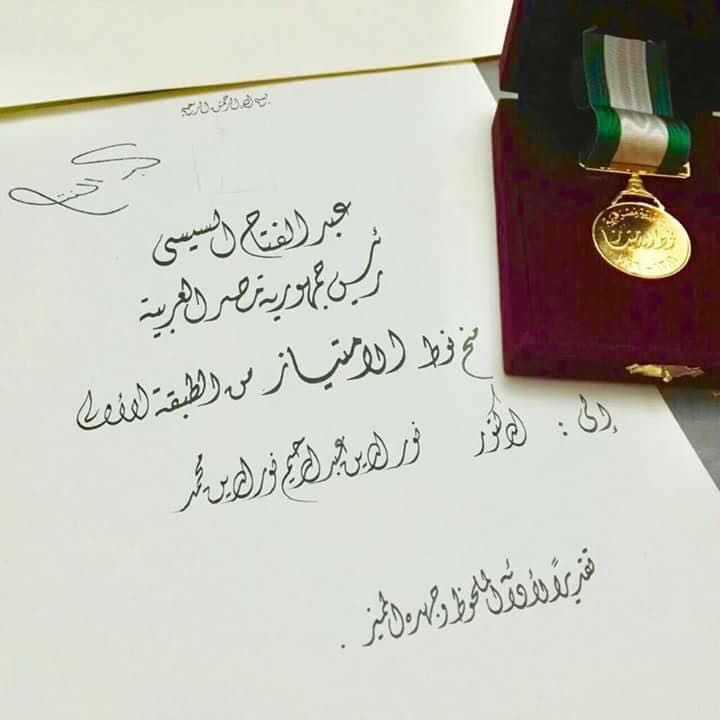 بسم الله الرحمن الرحيم
عبد الفتاح السيسى
رئيس جمهورية مصر العربية
منح نوط الامتياز من الطبقة الأولى
إلى : الدكتور نور الدين عبد الرحيم نور الدين محمد
تقديراً لأدائه الملحوظ وجهده المميز .